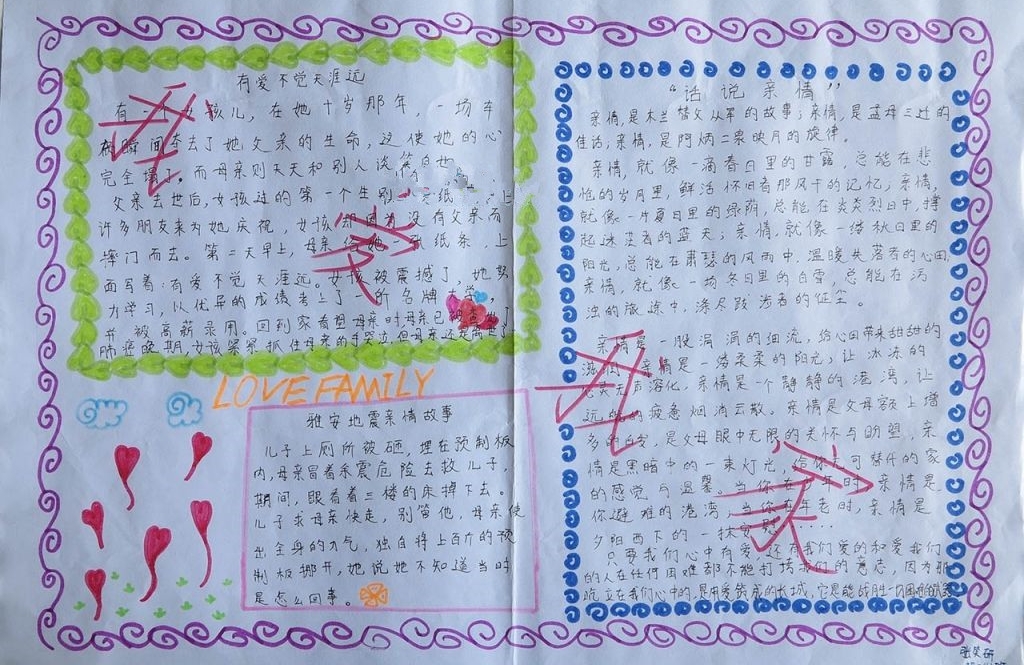 有爱不觉天涯远
有一女孩儿，在她十岁那年，一场车
祸瞬间夺去了她父亲的生命，这使她的心
完全塌了。而母亲则天天和别人谈笑自
父亲去世后，女孩过的第一个生
许多朋友来为她庆祝，女孩 没有父亲而
摔门而去。第二天早上，母亲 她一张纸条，上
面写着：有爱不觉天涯远。女孩被震撼了，她努
力学习，以优异的成绩考上了一所名牌大学，
并被高薪录用。回到家看望母亲时，母亲已
肺癌晚期，女孩紧紧抓住母亲的手哭泣，但母亲还是
LOVE FAMILY
雅安地震亲情故事
儿子上厕所被砸，埋在预制板
内，母亲冒着余震危险去救儿子，
期间，眼看着三楼的床掉下去。
儿子求母亲快走，别管他，母亲使
出全身的力气，独自将上百斤的预
制板挪开，她说她不知道当时
是怎么回事。
“话说亲情”
亲情，是木兰替父从军的故事；亲情，是孟母三迁的
佳话；亲情，是阿炳二泉映月的旋律。
亲情，就像一滴春日里的甘露，总能在悲
怆的岁月里，鲜活怀旧者那风干的记忆；亲情，
就像一片夏日里的绿荫，总能在炎炎烈日中，撑
起迷茫者的蓝天；亲情，就像一缕秋日里的
阳光，总能在肃瑟的风雨中，温暖失落者的心田；
亲情，就像一场冬日里的白雪，总能在污
浊的旅途中，涤尽跋涉者的征尘。
亲情是一股涓涓的细流，给心田带来甜甜的
滋润；亲情是一缕柔柔的阳光，让冰冻的
心灵无声溶化，亲情是一个静静的港湾，让
远航的疲惫烟消云散。亲情是父母额上增
多的白发，是父母眼中无限的关怀与盼望，亲
情是黑暗中的一束灯光，给你无可替代的家
的感觉与温馨。当你在少年时，亲情是
你避难的港湾，当你在年老时，亲情是
夕阳西下的一抹安慰
只要我们心中有爱，还有我们爱的和爱我们
的人在任何困难都不能打垮我们的意志，因为那
屹立在我们心中的，是用爱筑成的长城，它是能战胜一切困
母
亲
母
亲
张笑研